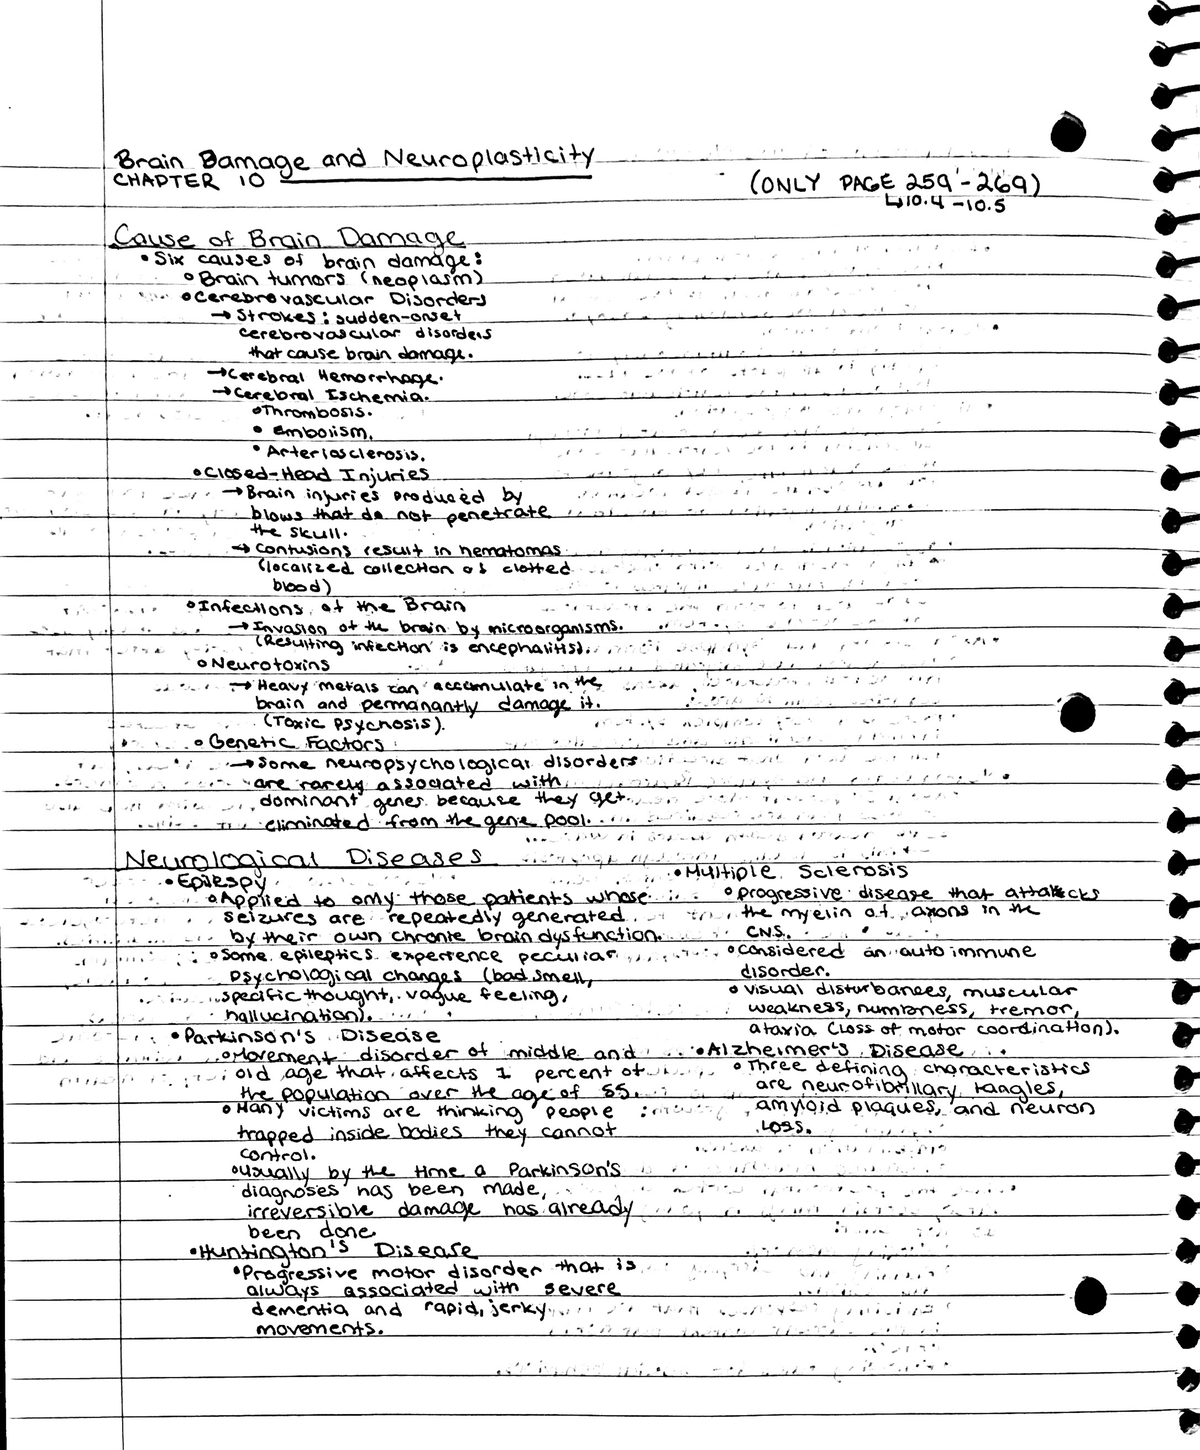 Brain Damage and Neuroplasticity
CHAPTER 10
(ONLY PAGE 259-269)
↳10.4-10.5
Cause of Brain Damage
• Six causes of brain damage:
• Brain tumors (neoplasm)
• Cerebrovascular Disorders
→ Strokes: sudden-onset
cerebrovascular disorders
that cause brain damage.
→ Cerebral Hemorrhage.
→ Cerebral Ischemia.
• Thrombosis.
• Embolism.
• Arteriosclerosis.
• Closed-Head Injuries
→ Brain injuries produced by
blows that do not penetrate
the skull.
→ contusions result in hematomas
(localized collection of clotted
blood)
• Infections of the Brain
→ Invasion of the brain by microorganisms.
(Resulting infection is encephalitis).
• Neurotoxins
→ Heavy metals can accumulate in the
brain and permanantly damage it.
(Toxic psychosis).
• Genetic Factors
→ Some neuropsychological disorders
are rarely associated with
dominant genes because they get
eliminated from the gene pool.
Neurological Diseases
• Epilespy
• Applied to only those patients whose
seizures are repeatedly generated
by their own chronic brain dysfunction.
• Some epileptics experience peculiar
psychological changes (bad smell,
specific thought, vague feeling,
hallucination).
• Parkinson's Disease
• Movement disorder of middle and
old age that affects 1 percent of
the population over the age of 55.
• Many victims are thinking people
trapped inside bodies they cannot
control.
• Usually by the time a Parkinson's
diagnoses has been made,
irreversible damage has already
been done.
• Huntington's Disease
• Progressive motor disorder that is
always associated with severe
dementia and rapid, jerky
movements.
• Multiple Sclerosis
• progressive disease that attacks
the myelin of axons in the
CNS.
• considered an auto immune
disorder.
• visual disturbances, muscular
weakness, numbness, tremor,
ataxia (loss of motor coordination).
• Alzheimer's Disease
• Three defining characteristics
are neurofibrillary tangles,
amyloid plaques, and neuron
loss.